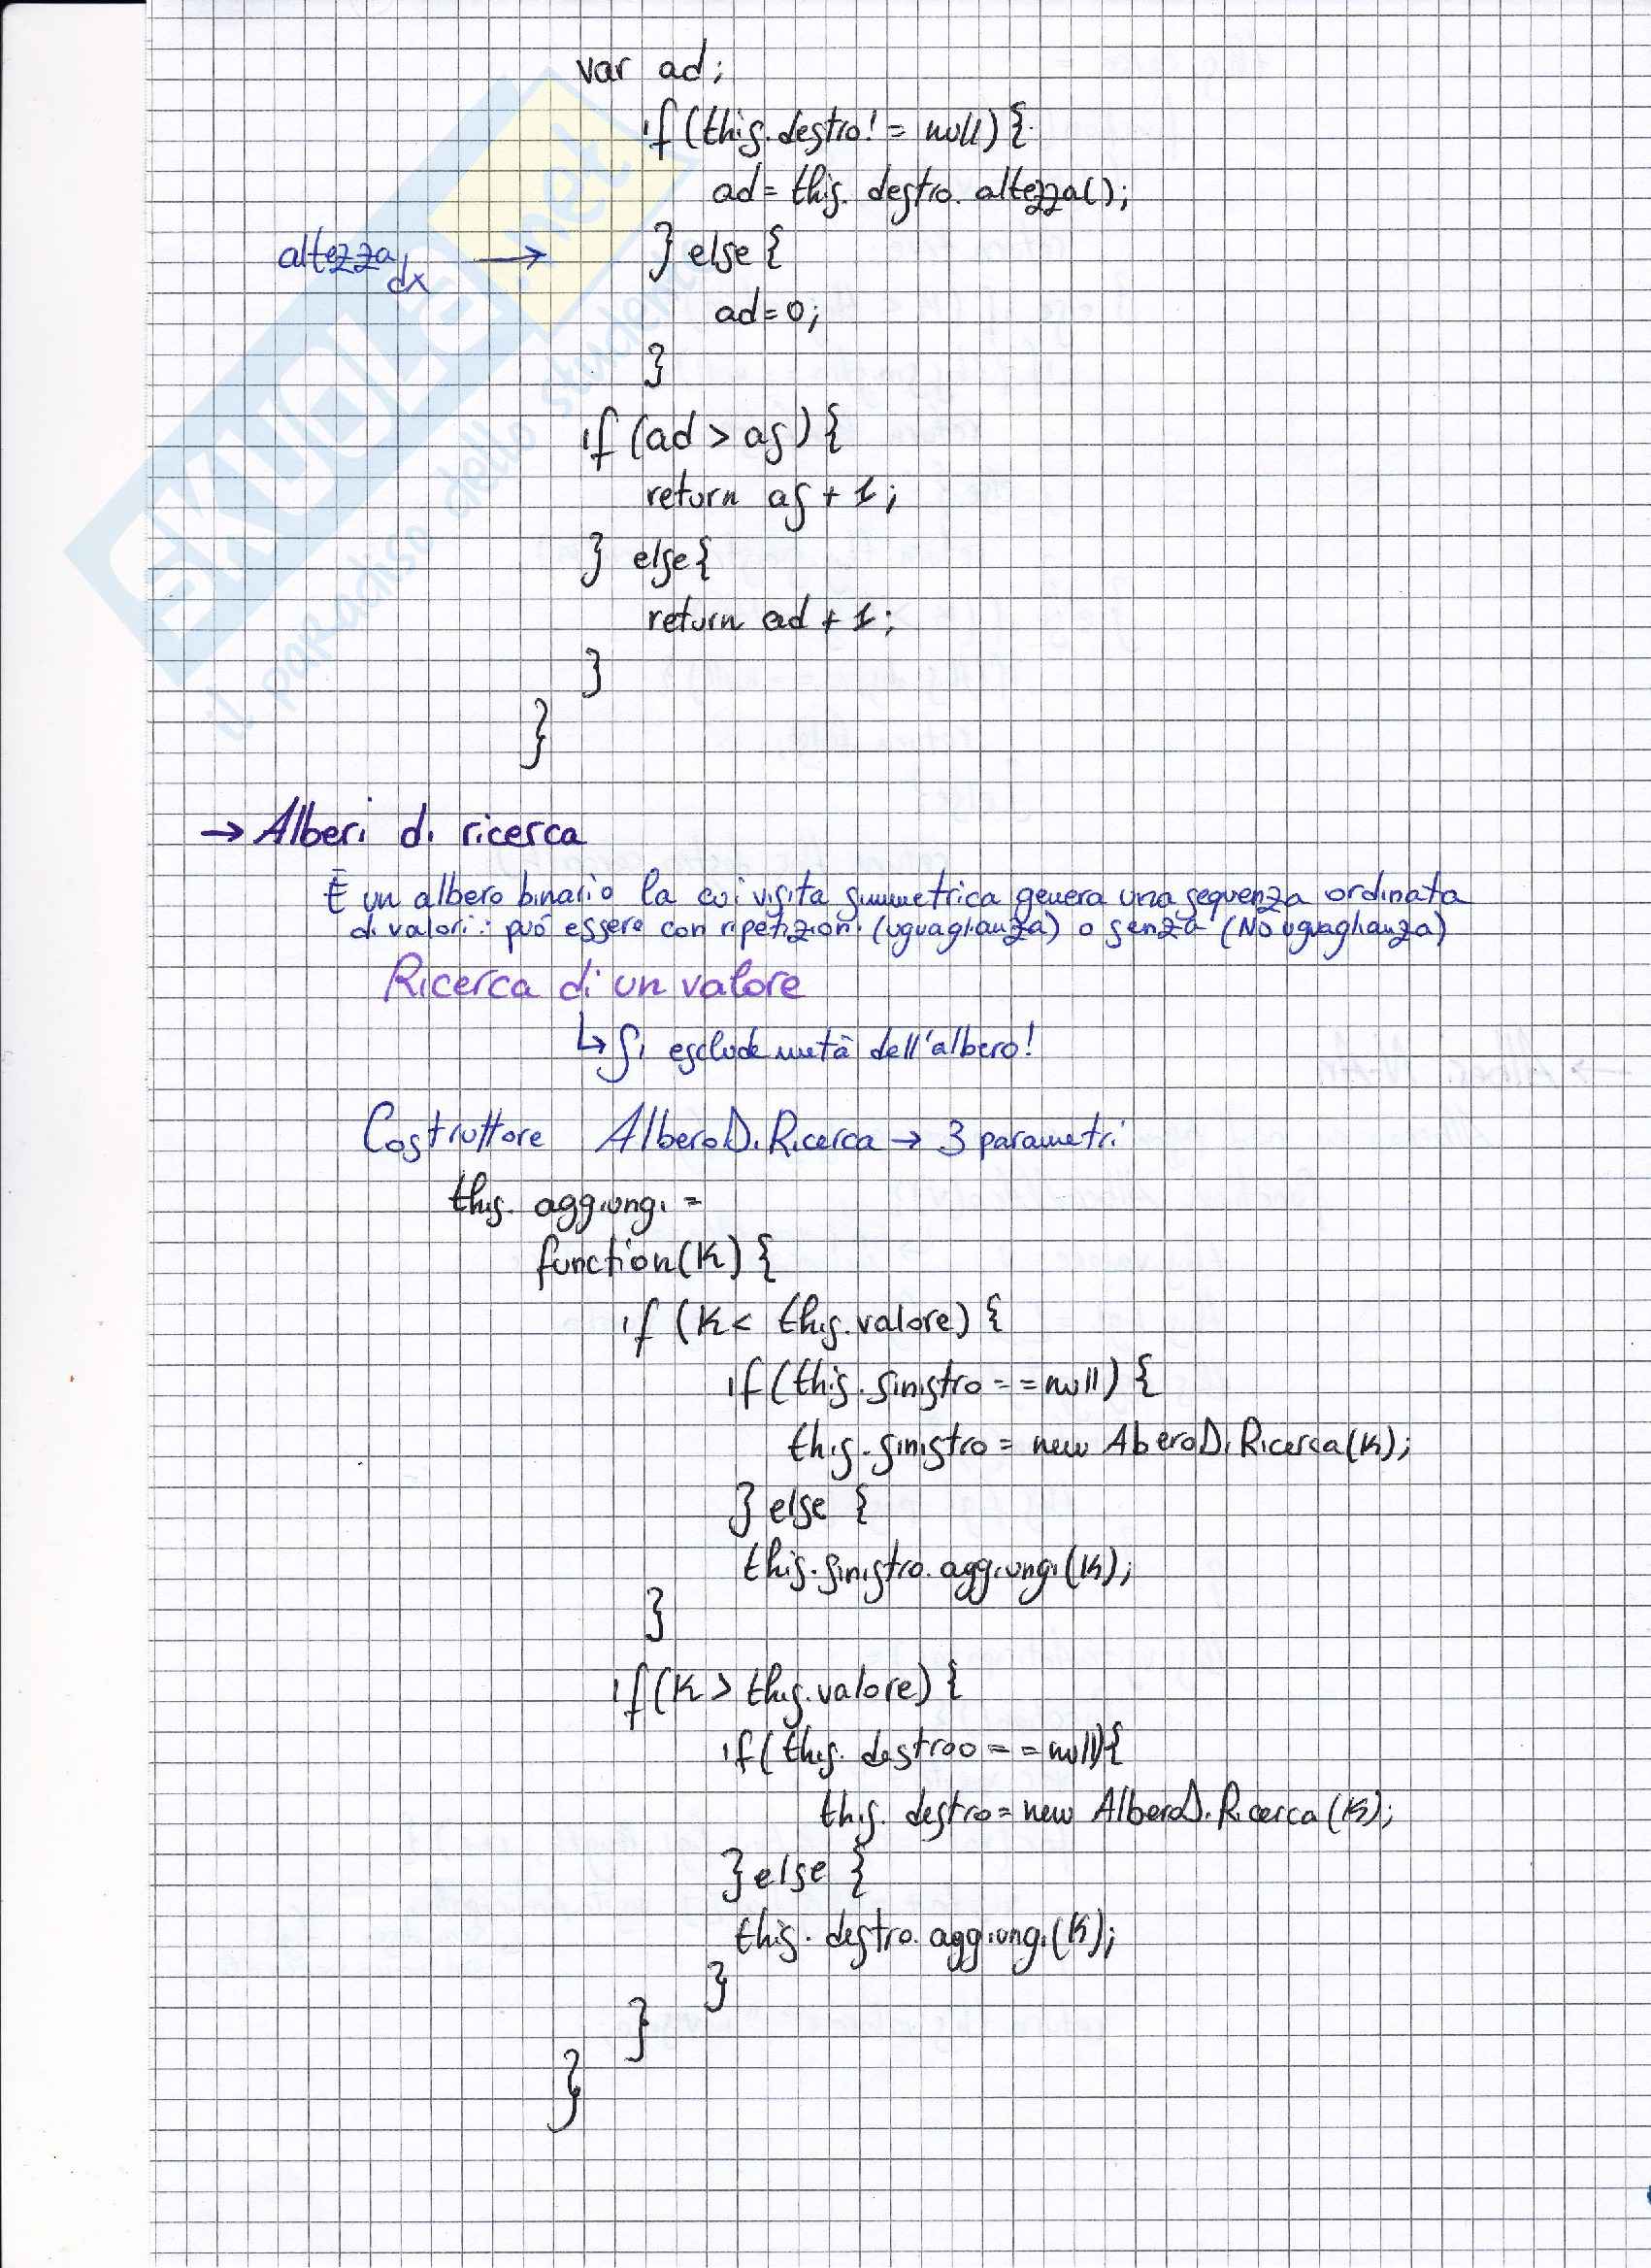 var ad;
if (this.destro! = null) {
ad = this. destro. altezza();
altezza dx → } else {
ad = 0;
}
if (ad > as) {
return as + 1;
} else {
return ad + 1;
}
}
→ Alberi di ricerca
È un albero binario la cui visita simmetrica genera una sequenza ordinata
di valori: può essere con ripetizioni (uguaglianza) o senza (No uguaglianza)
Ricerca di un valore
↳ Si esclude metà dell'albero!
Costruttore AlberoDiRicerca → 3 parametri
this. aggiungi =
function(K) {
if (K < this.valore) {
if (this.sinistro == null) {
this.sinistro = new AberoDiRicerca(K);
} else {
this.sinistro.aggiungi(K);
}
if (K > this.valore) {
if (this. destroo == null) {
this. destro = new AlberoDiRicerca (K);
} else {
this. destro. aggiungi(K);
}
}
}
SKUOLA.net
il paradiso dello studente